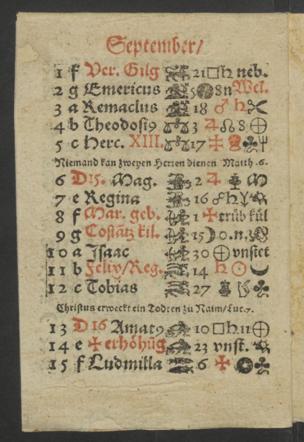 September/
1 f Ver. Gilg 21 □ ♄ neb.
2 g Emericus 5 8 n Wel.
3 a Remaclus 18 ♂ ♄
4 b Theodosi9 3 ♃ ☊ 8 ⊕
5 c Herc. XIII. 17
Niemand kan zweyen Herren dienen Matth. 6.
6 D 15. Mag. 2 ♃
7 e Regina 16 ☍ ♄
8 f Mar. geb. 1 trüb kül
9 g Costãtz kil. 15 ☽ 0. n.
10 a Isaac 30 ⊕ vnstet
11 b Felix/Reg. 14 ♄ ☉
12 c Tobias 27
Christus erweckt ein Todten zu Naim/Luc. 7.
13 D 16 Amat9 10 □ ♄ 11 ⊕
14 e erhöhũg 23 vnst.
15 f Ludmilla 6